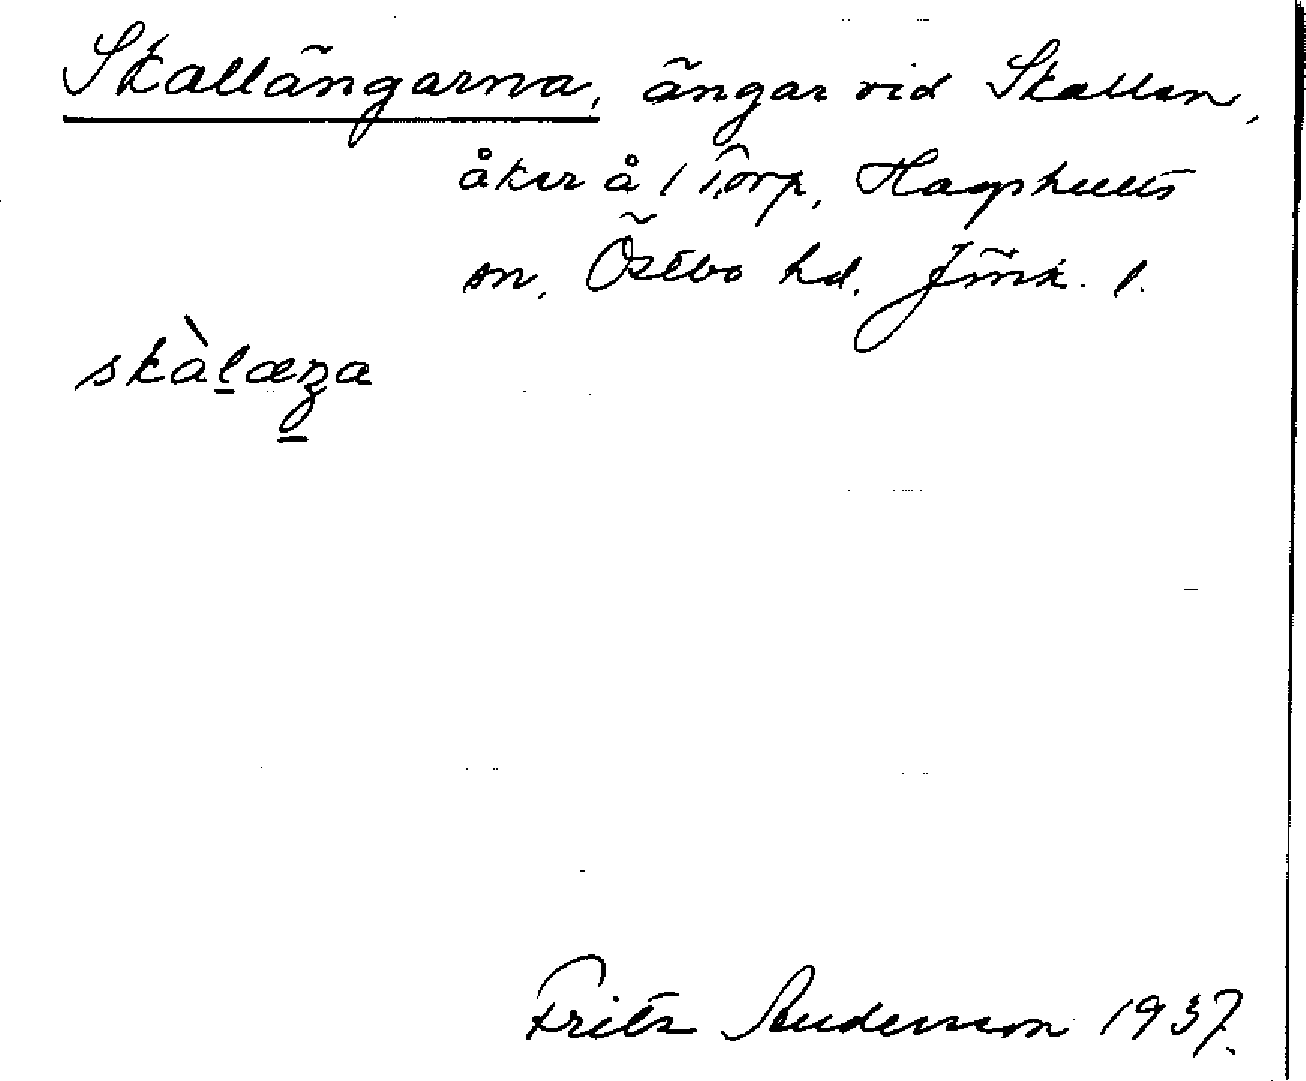 Skallängarna, ängar vid Skallen,
åker å 1 Torp, Hagshults
sn, Östbo hd. Jönk. l.
skàlæŋa
Fritz Andersson 1937.